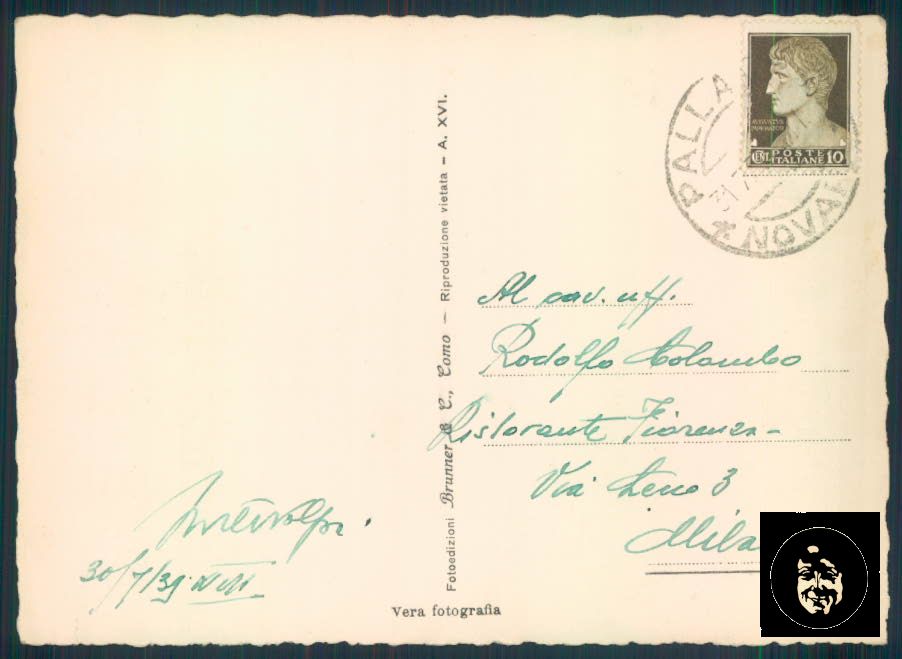 AVGVSTVS
IMPERATOR
CENT. POSTE ITALIANE 10
PALLA
31.7
* NOVA
Fotoedizioni Brunner & C., Como – Riproduzione vietata – A. XVI.
Al cav. uff.
Rodolfo Colombo
Ristorante Fiorenza -
Via 3
Mila
30/7/39 XVII
Vera fotografia